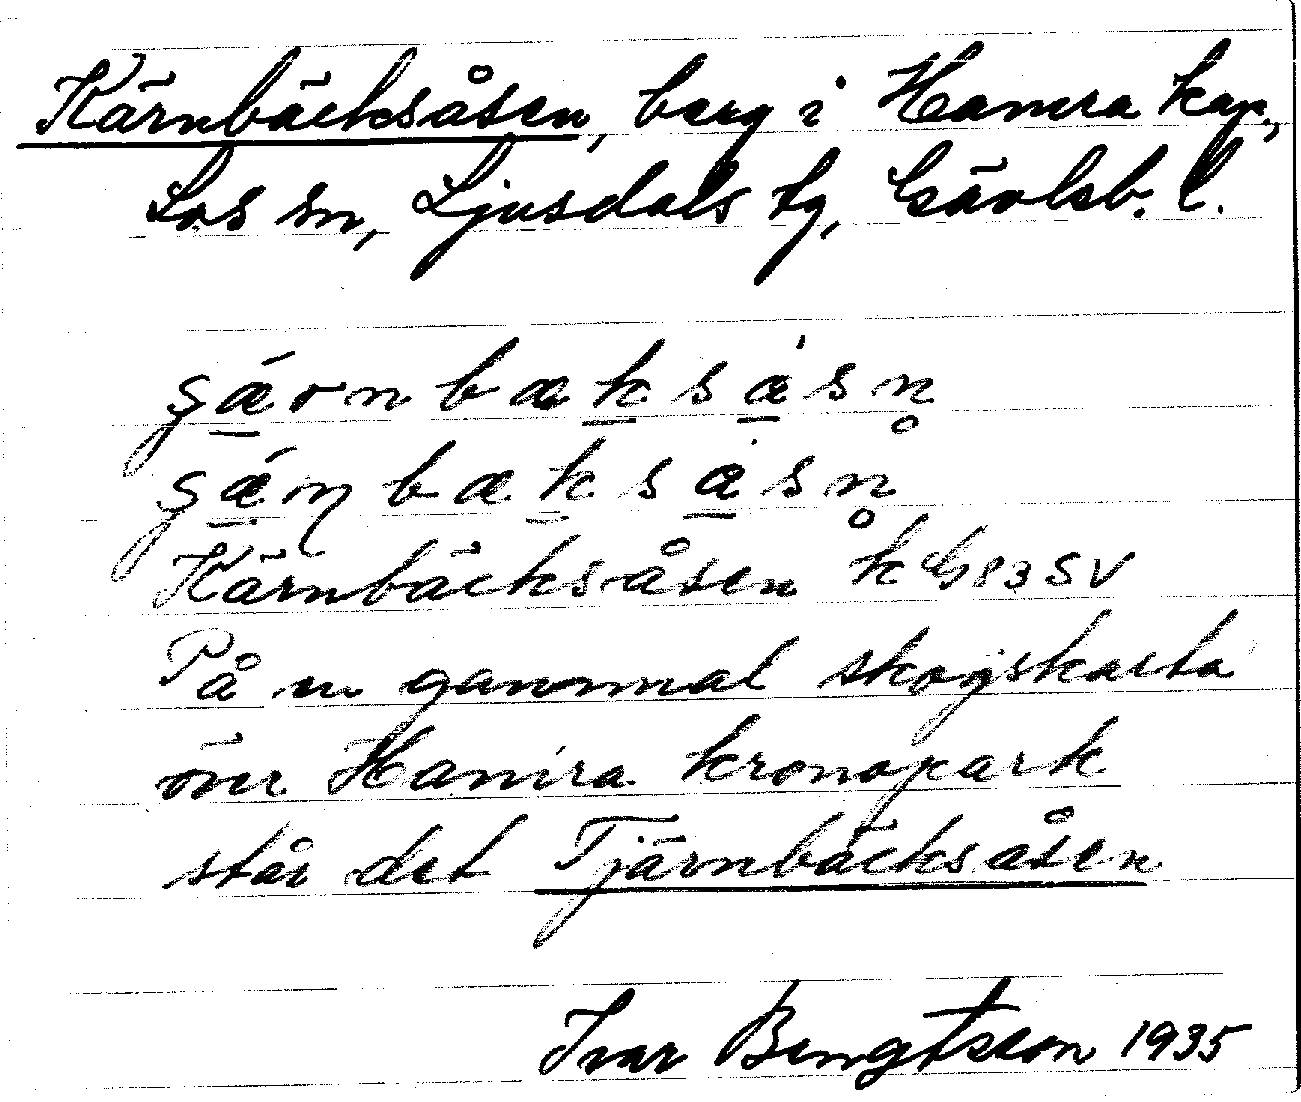 Kärnbäcksåsen, berg i Hamra kap.,
Los sn, Ljusdals tg, Gävleb. l.
Kärnbäcksåsen k G 83 SV
På en gammal skogskarta
över Hamra kronopark
står det Tjärnbäcksåsen
Ivar Bengtsson 1935